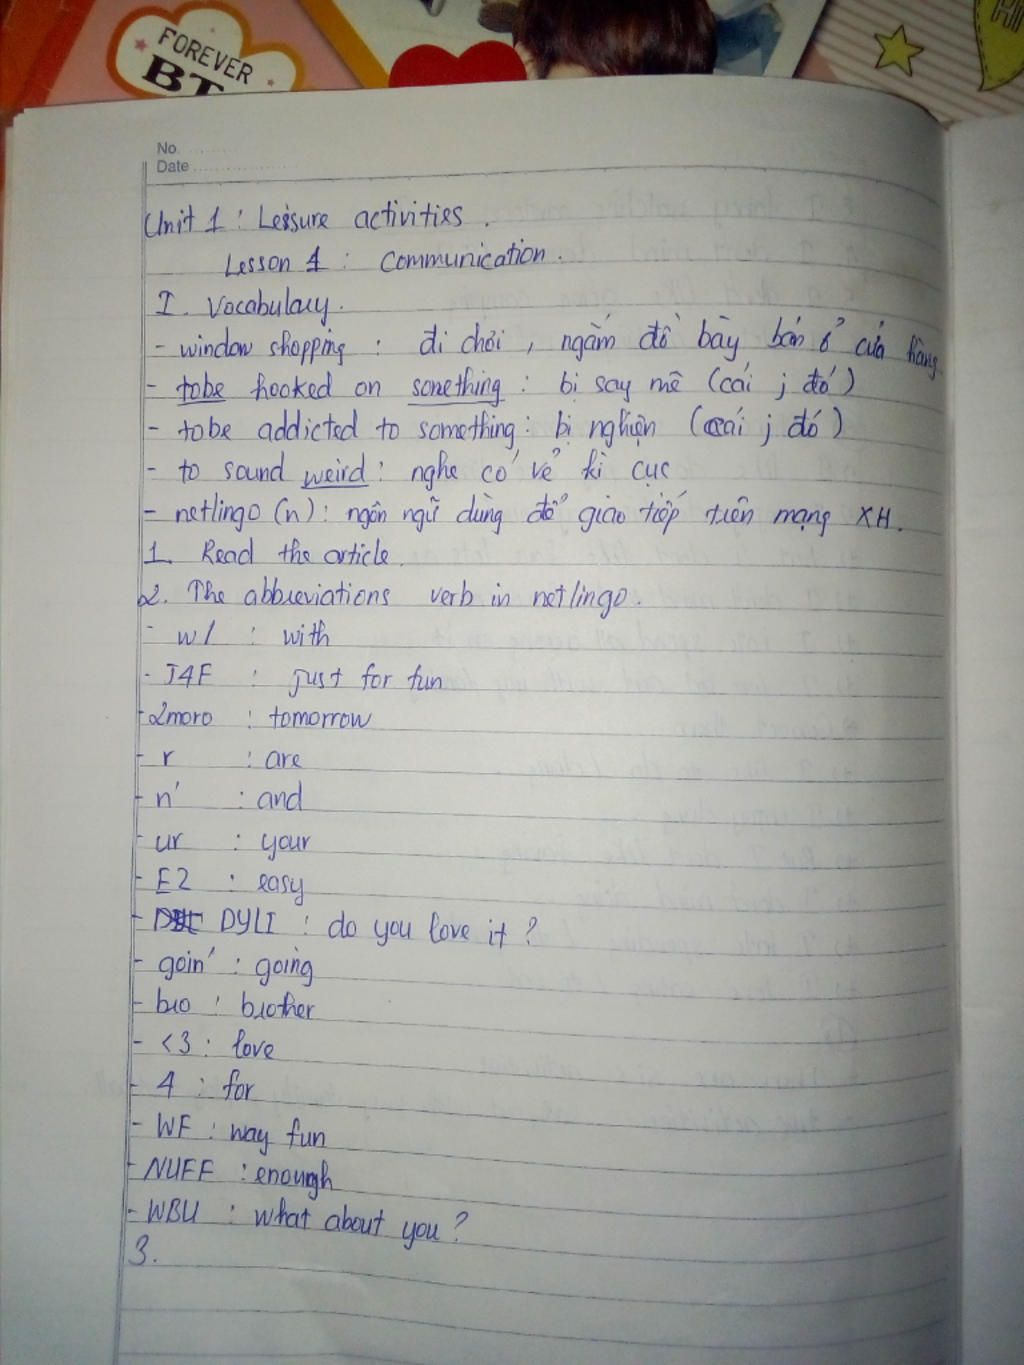 FOREVER
BT
No.
Date
Unit 1 : Leisure activities .
Lesson 4 : Communication .
I. Vocabulary.
- window shopping : đi chơi , ngắm đồ bày bán ở cửa hàng
- tobe hooked on something : bị say mê (cái j đó)
- tobe addicted to something : bị nghiện (cái j đó)
- to sound weird : nghe có vẻ kì cục
- netlingo (n) : ngôn ngữ dùng để giao tiếp trên mạng XH.
1. Read the article.
2. The abbreviations verb in netlingo.
- w/ : with
- J4F : just for fun
- 2moro : tomorrow
- r : are
- n' : and
- ur : your
- EZ : easy
- DYLI : do you love it ?
- goin' : going
- bro : brother
- <3 : love
- 4 : for
- WF : way fun
- NUFF : enough
- WBU : what about you ?
3.